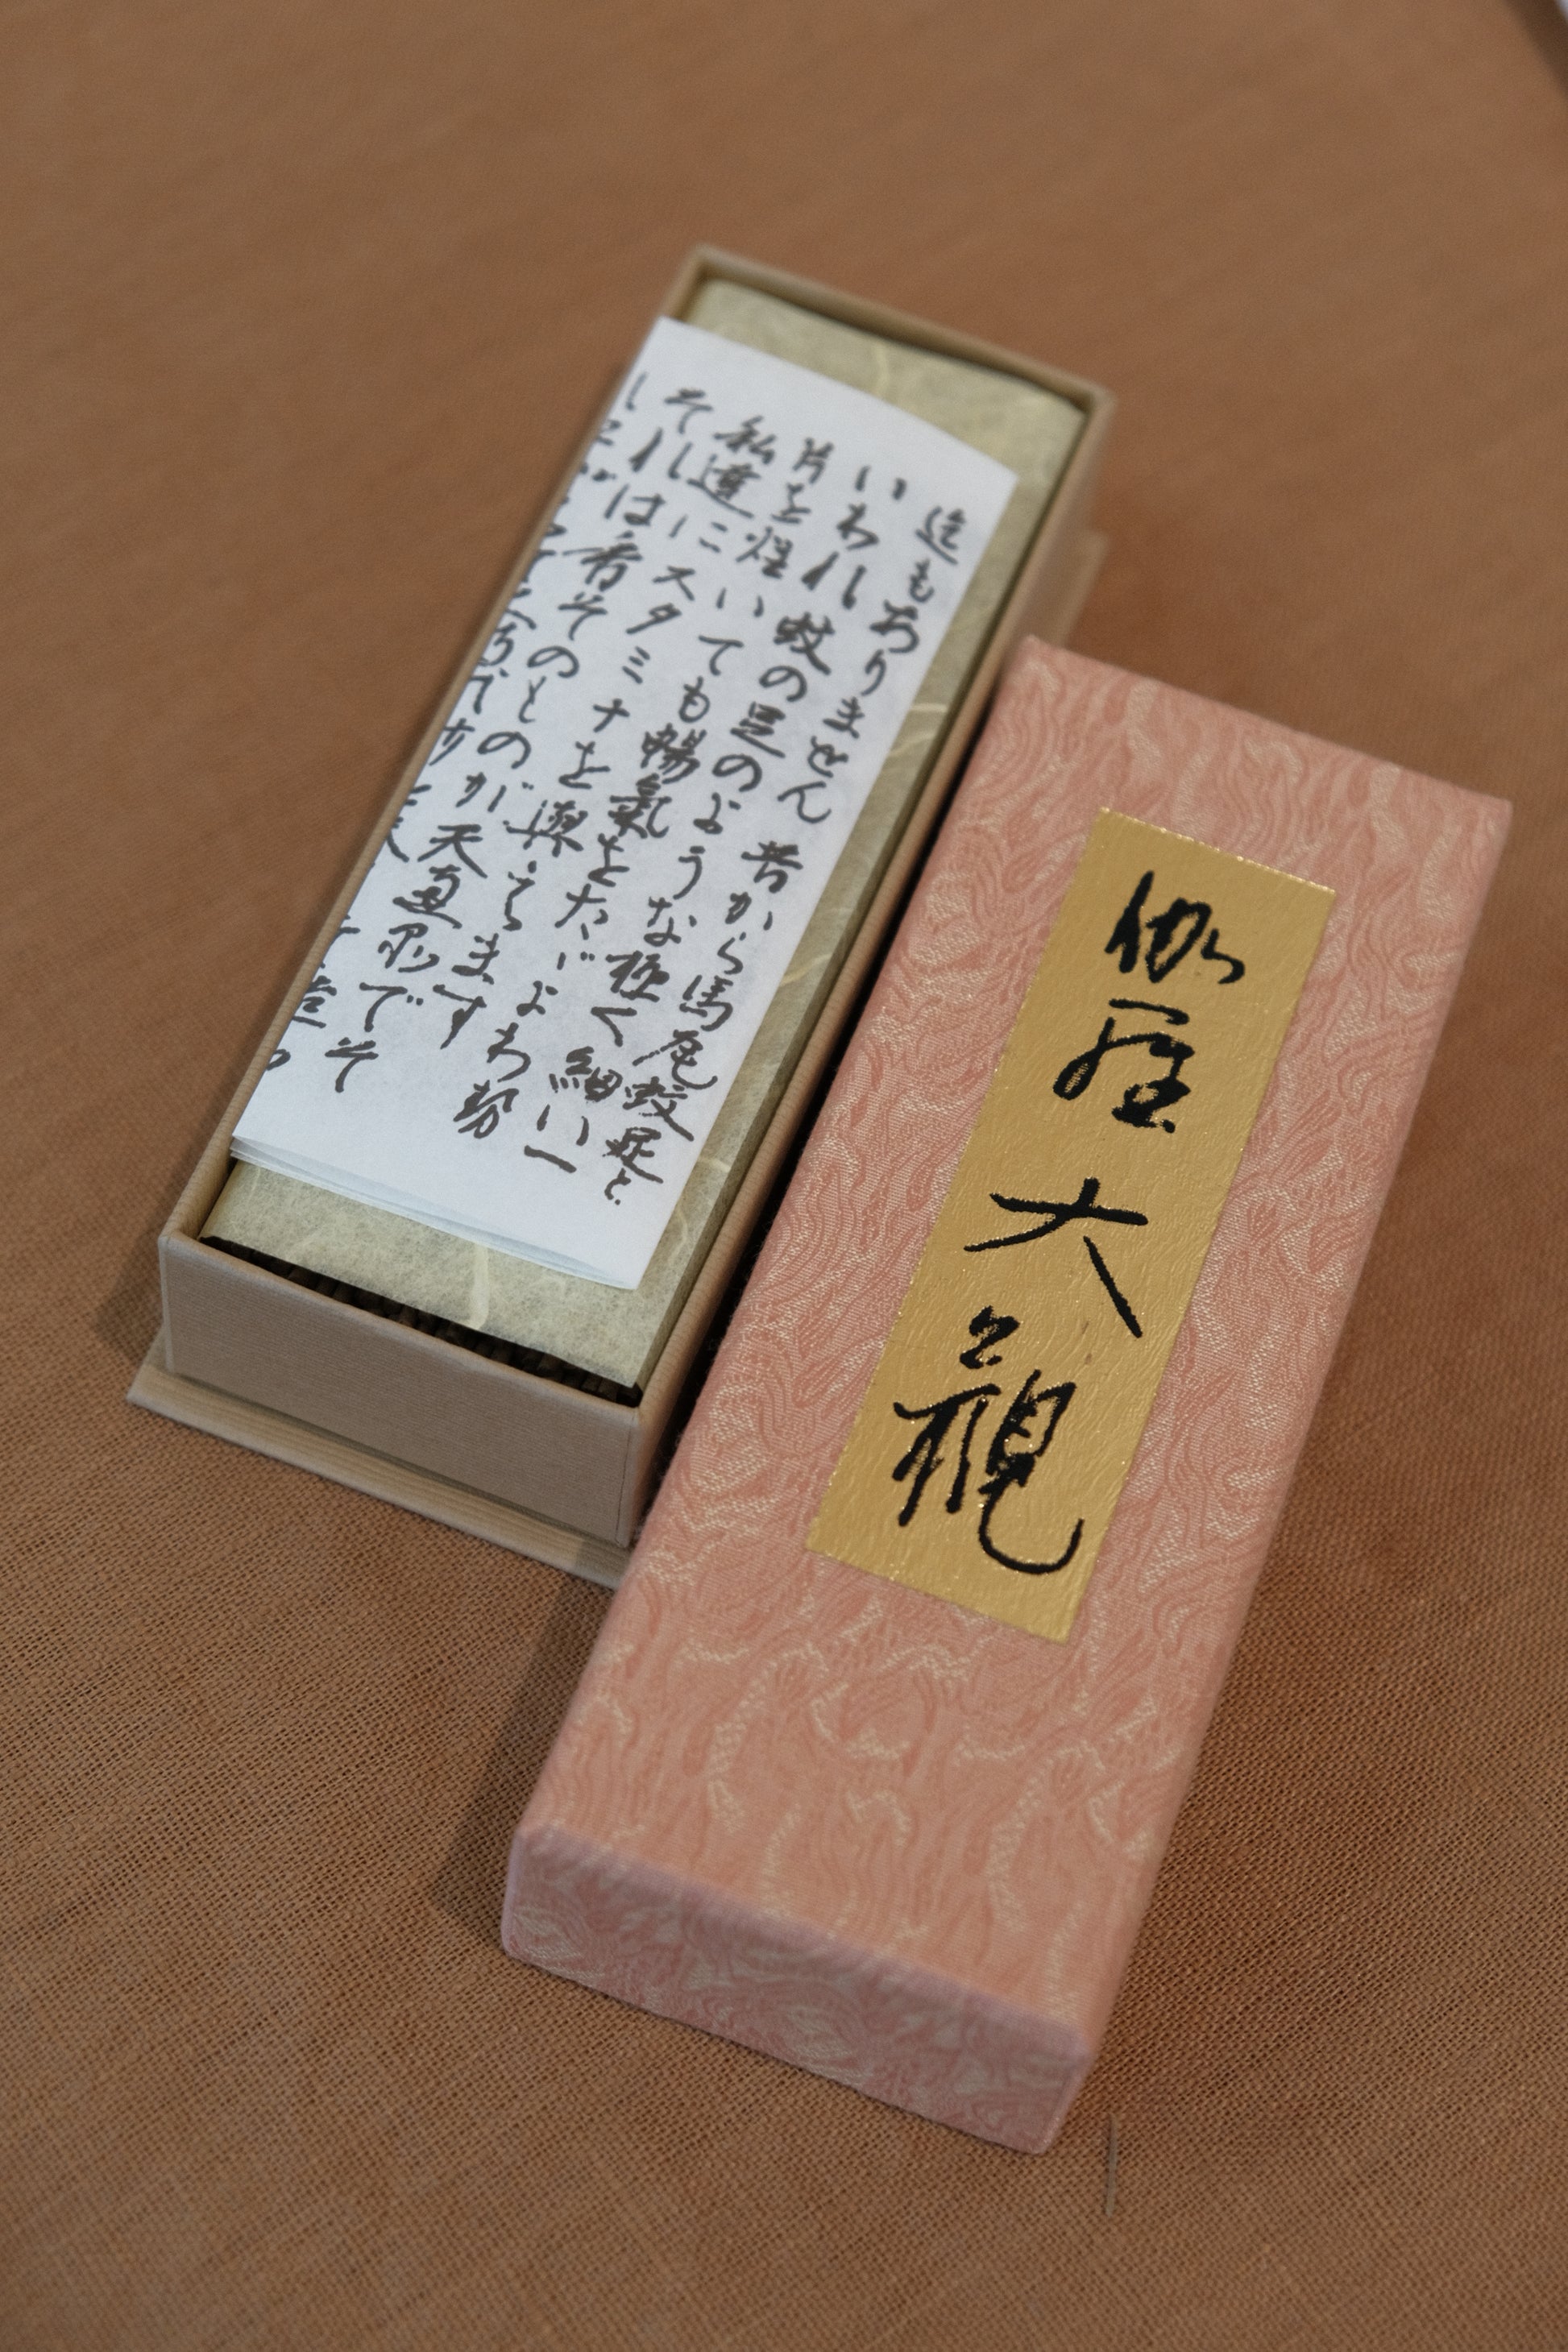 迄もありません 昔から馬尾蚊足と
いわれ 蚊の足のような極く細い一
片を炷いても暢氣をたゞよわ勢
私達にスタミナを與えます
それは香そのものが天でそ
伽羅大観